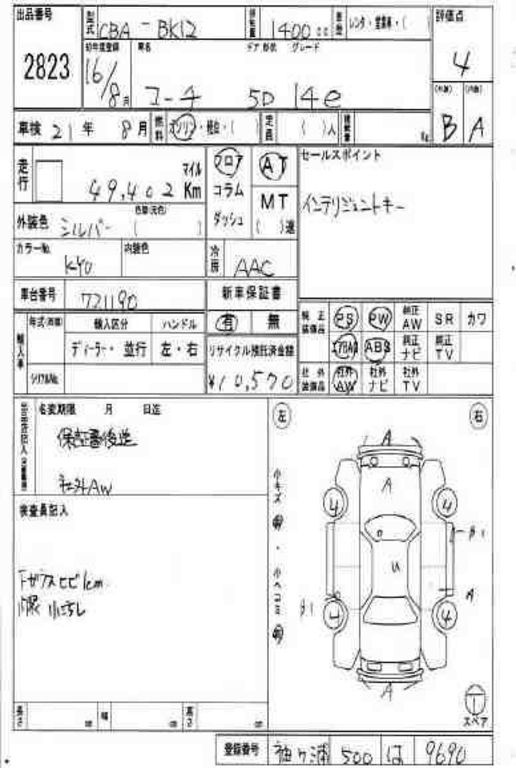 出品番号 型式 CBA-BK12 排気量 1400 cc 車歴 レンタ・営業車・( ) 評価点
2823 初年度登録 車名 ドア 形状 グレード 4
16/8月 マーチ 5D 14e (外装) (内装)
車検 21年 8月 燃料 ガソリン・軽油・( ) 定員 ( )人 積載量 Kg B A
走行 マイル フロア AT セールスポイント
49,402 Km コラム MT インテリジェントキー
外装色 シルバー 色替(元色) ( ) ダッシュ ( )速
カラーNo. KY0 内装色 冷房 AAC
車台番号 721190 新車保証書 純正装備品 PS PW 純正AW SR カワ
輸入車 年式(西暦) 輸入区分 ハンドル 有 無 エアBAG ABS 純正ナビ 純正TV
ディーラー・並行 左・右 リサイクル預託済金額 社外装備品 社外AW 社外ナビ 社外TV
シリアルNo. ¥10,570
名変期限 月 日迄 左 右
保証書後送 A
社外AW A
検査員記入 小キズ 小ヘコミ 4 4
B1
U
Fガラスヒビ1cm A
内張 小ヨゴレ B1 4 4
A
長さ cm 幅 cm 高さ cm スペア
登録番号 袖ヶ浦 500 は 9690